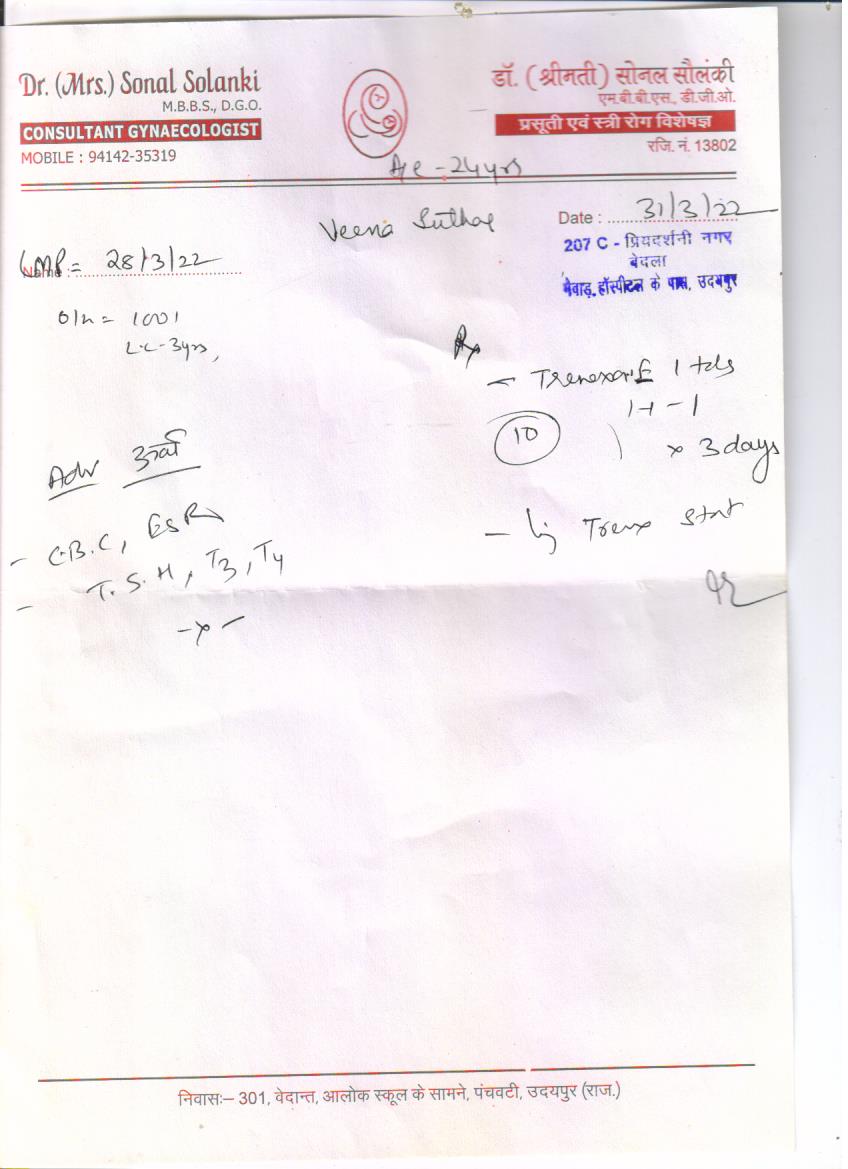 Dr. (Mrs.) Sonal Solanki
M.B.B.S., D.G.O.
CONSULTANT GYNAECOLOGIST
MOBILE : 94142-35319
डॉ. (श्रीमती) सोनल सौलंकी
एम.बी.बी.एस., डी.जी.ओ.
प्रसूती एवं स्त्री रोग विशेषज्ञ
रजि. नं. 13802
Age - 24 yrs
Veena Suthar
Date : 31/3/22
207 C - प्रियदर्शनी नगर
बेदला
मेवाड़ हॉस्पीटल के पास, उदयपुर
LMP = 28/3/22
O/H = 1001
L.C - 3yrs,
Rx
- 1 tds
1-1-1
10
x 3 days
- Inj Trenx Stat
Adv
- C.B.C, ESR
- T.S.H, T3, T4
-x-
निवासः– 301, वेदान्त, आलोक स्कूल के सामने, पंचवटी, उदयपुर (राज.)